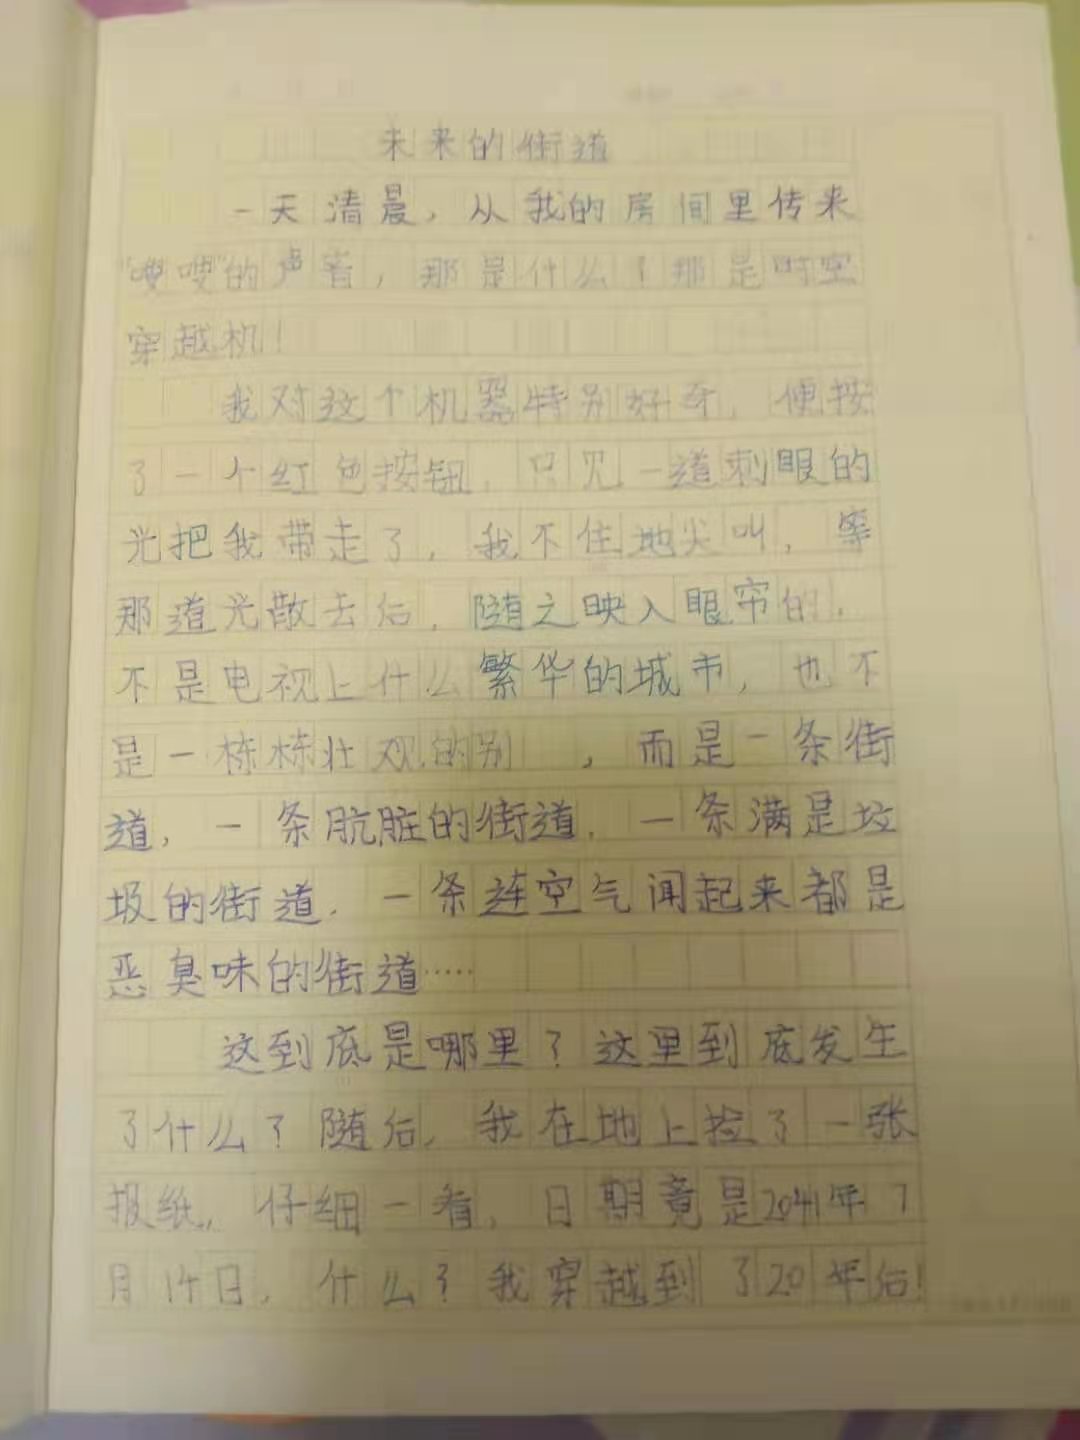 未来的街道
一天清晨，从我的房间里传来
“嗖嗖”的声音，那是什么？那是时空
穿越机！
我对这个机器特别好奇，便按
了一个红色按钮，只见一道刺眼的
光把我带走了，我不住地尖叫，等
那道光散去后，随之映入眼帘的，
不是电视上什么繁华的城市，也不
是一栋栋壮观的别 ，而是一条街
道，一条肮脏的街道，一条满是垃
圾的街道，一条连空气闻起来都是
恶臭味的街道……
这到底是哪里？这里到底发生
了什么？随后，我在地上捡了一张
报纸，仔细一看，日期竟是2041年7
月14日，什么？我穿越到了20年后！